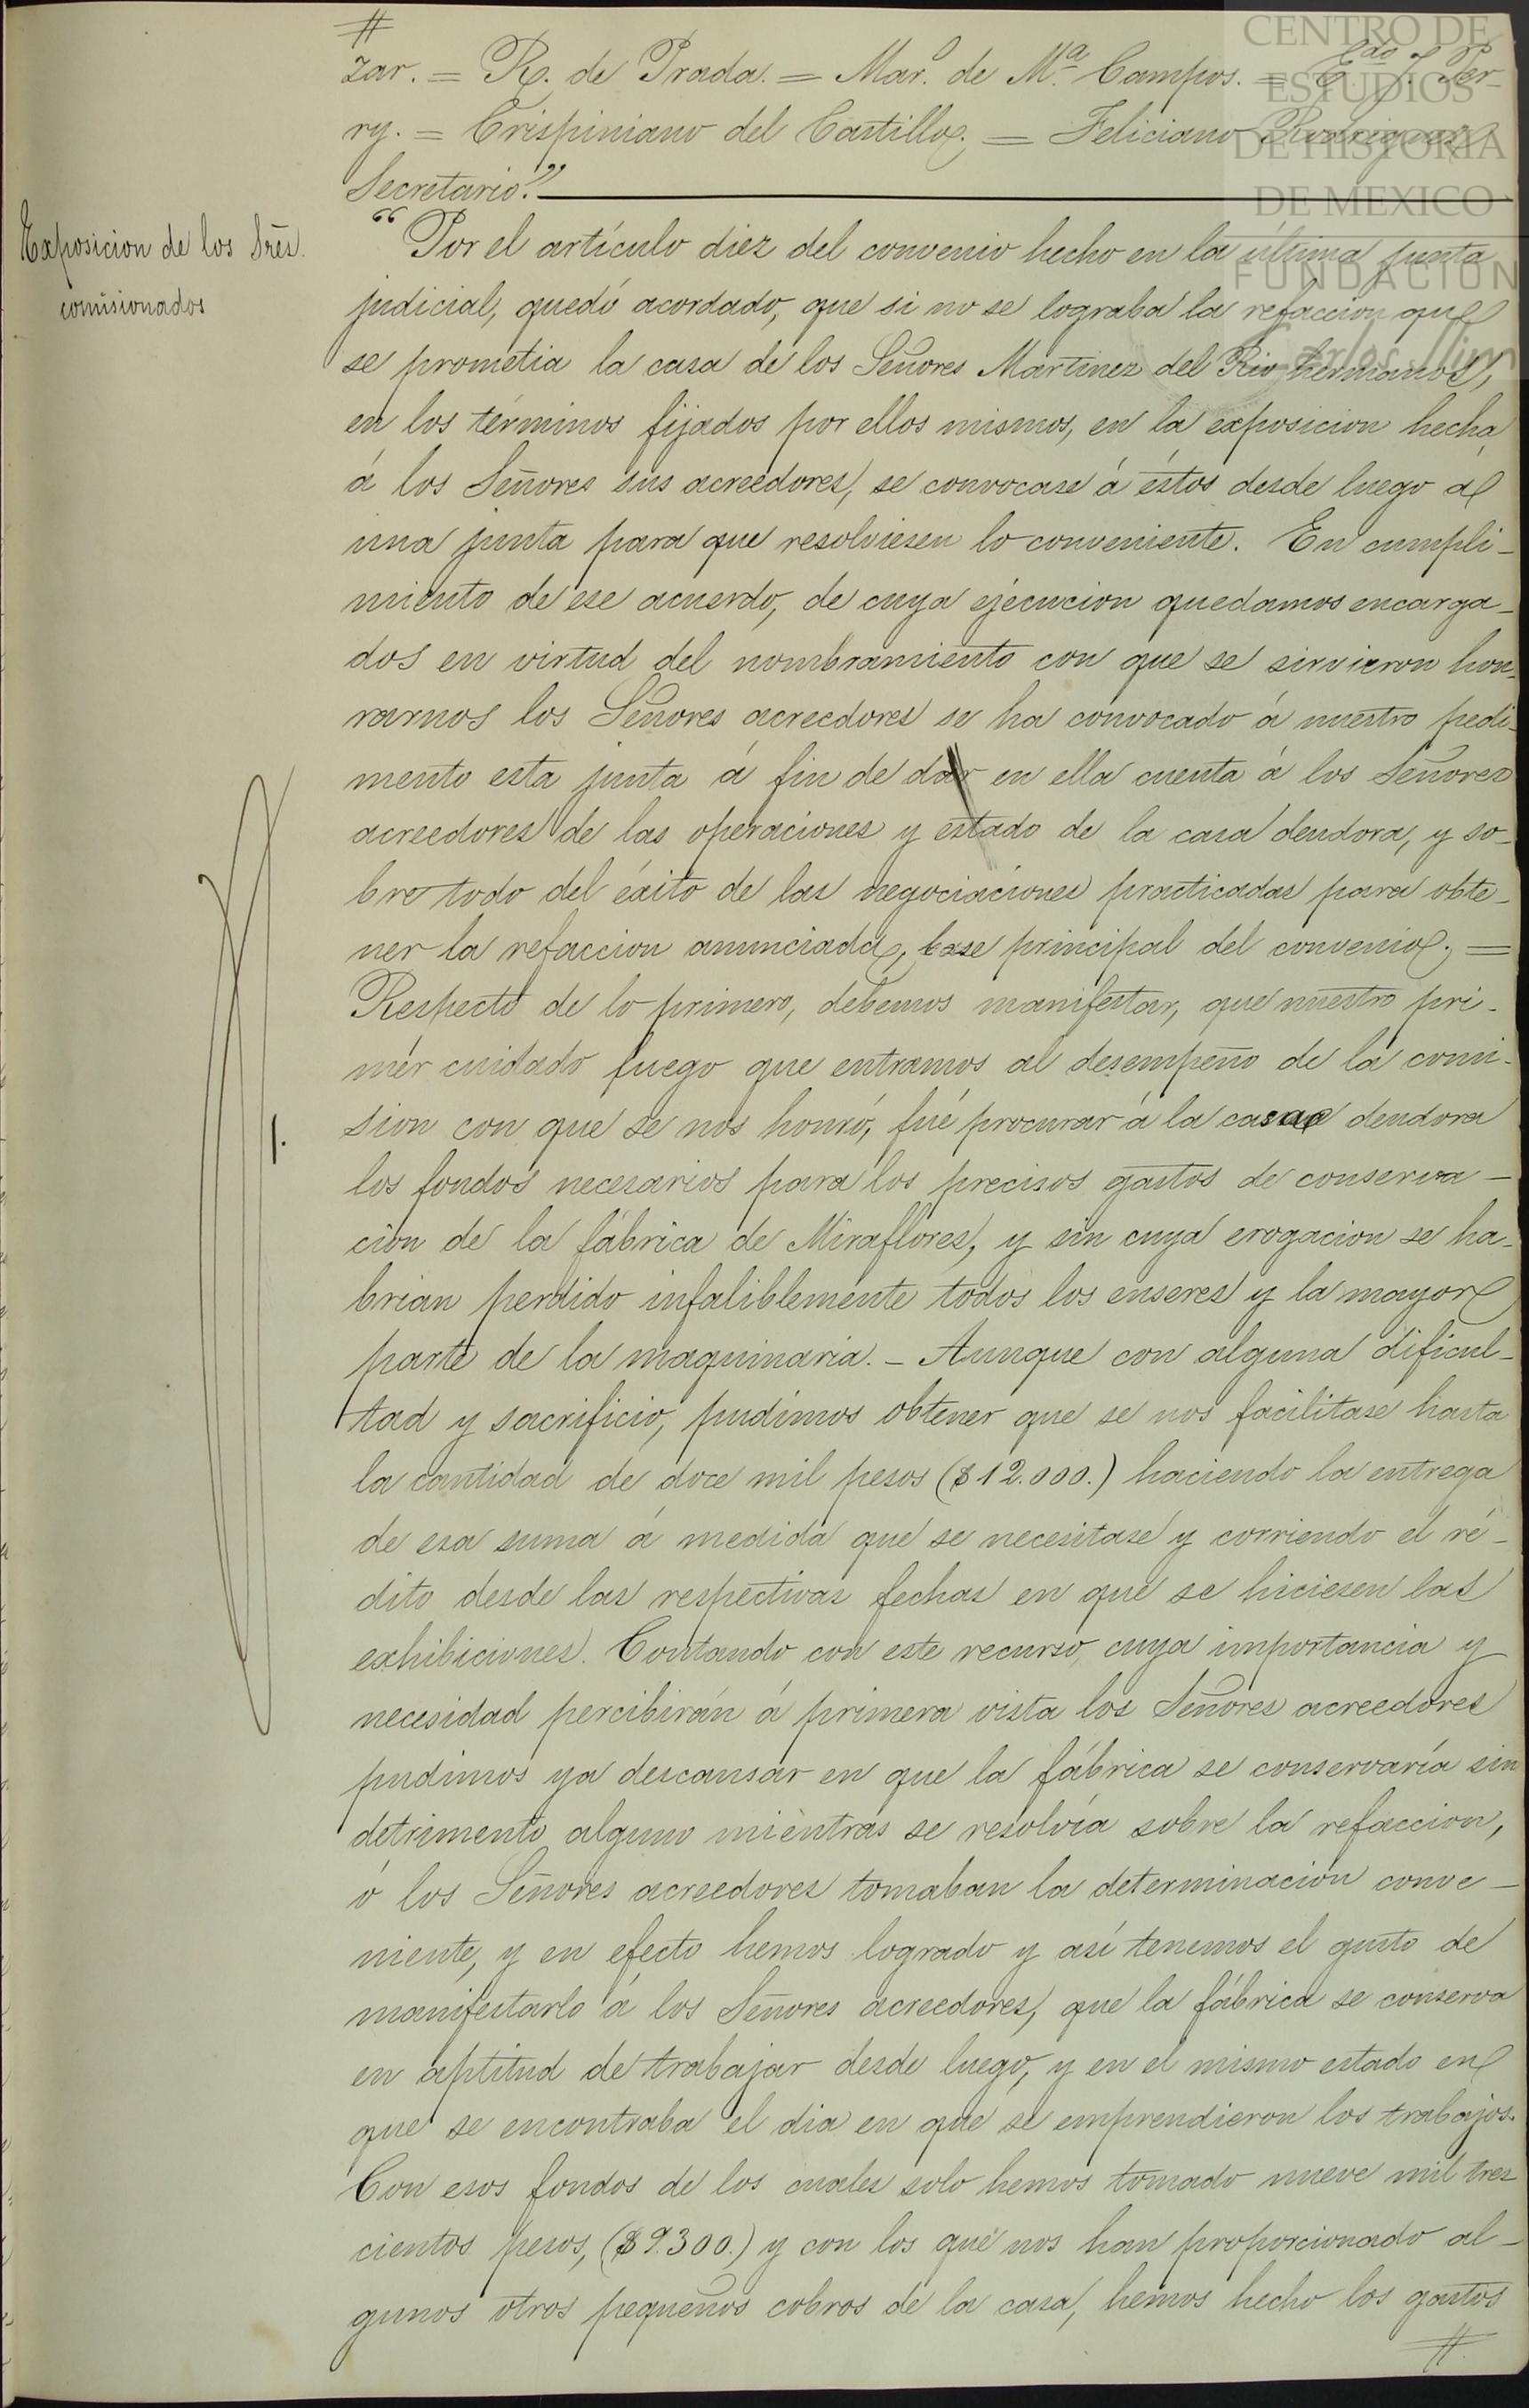 #
zar. = R. de Prada. = Mar.º de M.ª Campos. = E.do J. Per-
ry. = Crispiniano del Castillo. = Feliciano Rodriguez
Secretario."
Exposicion de los Srẽs.
comisionados
"Por el artículo diez del convenio hecho en la última junta
judicial, quedó acordado, que si no se lograba la refaccion que
se prometia la casa de los Señores Martinez del Rio hermanos,
en los términos fijados por ellos mismos, en la exposicion hecha
á los Señores sus acreedores, se convocase á éstos desde luego á
una junta para que resolviesen lo conveniente. En cumpli-
miento de ese acuerdo, de cuya ejecucion quedamos encarga-
dos en virtud del nombramiento con que se sirvieron hon-
rarnos los Señores acreedores se ha convocado á nuestro pedi-
mento esta junta á fin de dar en ella cuenta á los Señores
acreedores de las operaciones y estado de la casa deudora, y so-
bre todo del éxito de las negociaciones practicadas para obte-
ner la refaccion anunciada, base principal del convenio. =
Respecto de lo primero, debemos manifestar, que nuestro pri-
mer cuidado luego que entramos al desempeño de la comi-
sion con que se nos honró, fué procurar á la casa deudora
los fondos necesarios para los precisos gastos de conserva-
cion de la fábrica de Miraflores, y sin cuya erogacion se ha-
brian perdido infaliblemente todos los enseres y la mayor
parte de la maquinaria. - Aunque con alguna dificul-
tad y sacrificio, pudimos obtener que se nos facilitase hasta
la cantidad de doce mil pesos ($12.000.) haciendo la entrega
de esa suma á medida que se necesitase y corriendo el ré-
dito desde las respectivas fechas en que se hiciesen las
exhibiciones. Contando con este recurso, cuya importancia y
necesidad percibirán á primera vista los Señores acreedores
pudimos ya descansar en que la fábrica se conservaría sin
detrimento alguno miéntras se resolvía sobre la refaccion,
ó los Señores acreedores tomaban la determinacion conve-
niente, y en efecto hemos logrado y así tenemos el gusto de
manifestarlo á los Señores acreedores, que la fábrica se conserva
en aptitud de trabajar desde luego, y en el mismo estado en
que se encontraba el dia en que se emprendieron los trabajos.
Con esos fondos de los cuales solo hemos tomado nueve mil tres
cientos pesos, ($9.300.) y con los que nos han proporcionado al-
gunos otros pequeños cobros de la casa, hemos hecho los gastos
#
1.
CENTRO DE
ESTUDIOS
DE HISTORIA
DE MEXICO
FUNDACION
Carlos Slim